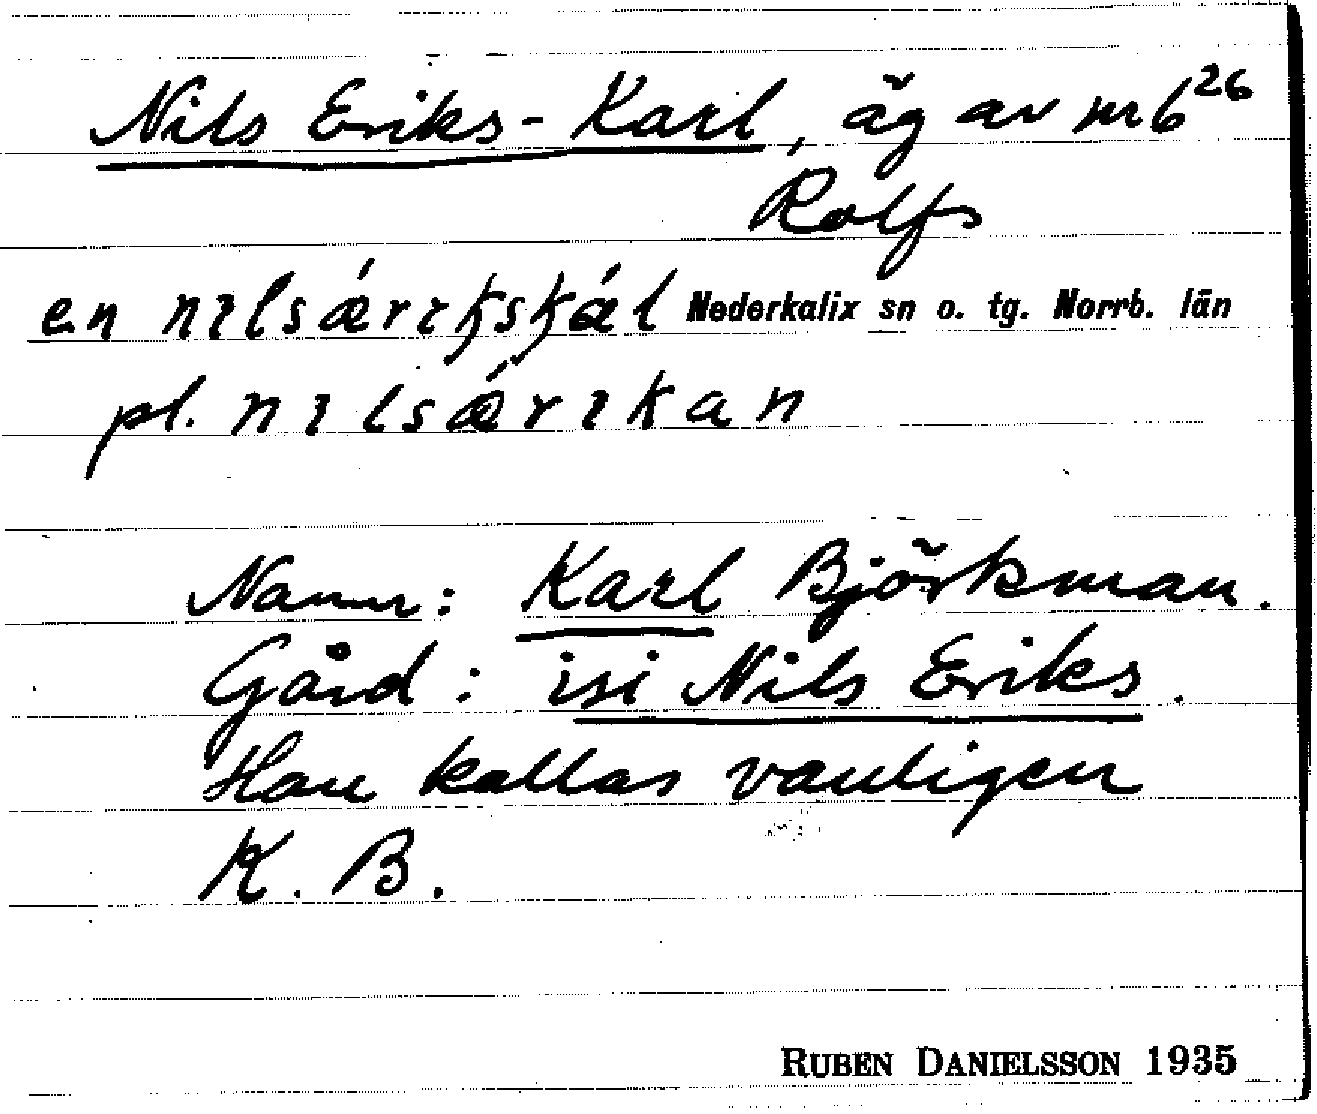 Nils Eriks-Karl, äg av nr 6²⁶
Rolfs
en nılsǽrıkskál Nederkalix sn o. tg. Norrb. län
pl. nılsǽrıkan
Namn: Karl Björkman.
Gård: isi Nils Eriks.
Han kallas vanligen
K. B.
RUBEN DANIELSSON 1935